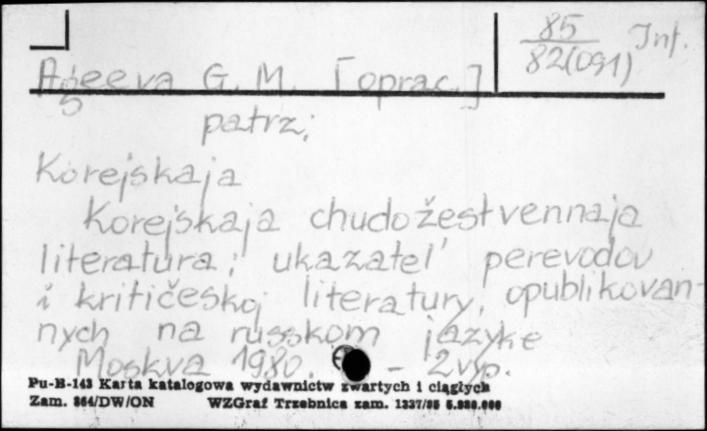 85
82(091) Inf.
Ageeva G. M. [oprac.]
patrz:
Korejskaja
Korejskaja chudožestvennaja
literatura; ukazatel' perevodov
i kritičeskoj literatury, opublikovan-
nych na russkom jazyke
Moskva 1980. - 2vyp.
Pu-B-143 Karta katalogowa wydawnictw zwartych i ciągłych
Zam. 864/DW/ON WZGraf Trzebnica zam. 1337/85